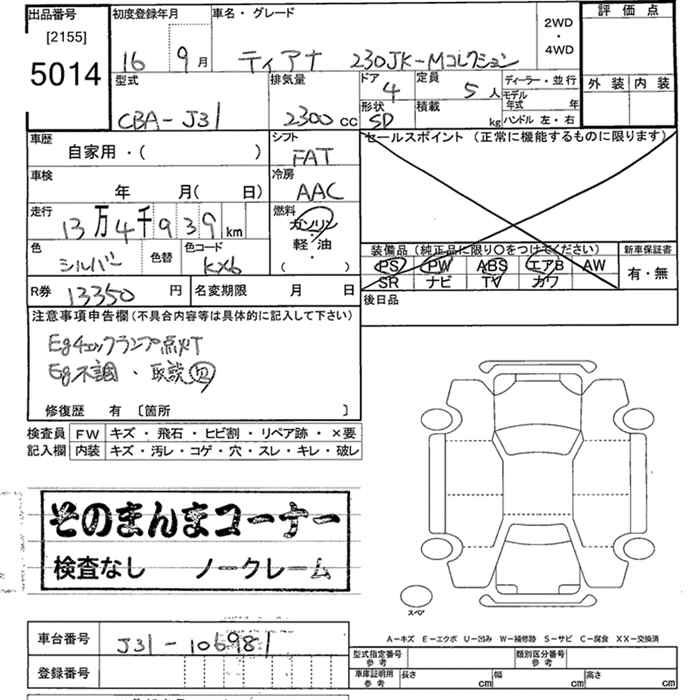 出品番号 初度登録年月 車名・グレード 2WD・4WD 評価点
[2155]
5014 16 9月 ティアナ 230JK-Mコレクション
型式 排気量 ドア 4 定員 5人 ディーラー・並行 外装 内装
モデル年式 年
CBA-J31 2300cc 形状 SD 積載 kg ハンドル 左・右
車歴 シフト セールスポイント (正常に機能するものに限ります)
自家用・( ) FAT
車検 冷房
年 月( 日) AAC
走行 燃料
13万4千939km ガソリン
軽・油
・
( )
色 色替 色コード
シルバー KX6
装備品 (純正品に限り○をつけてください) 新車保証書
PS PW ABS エアB AW 有・無
SR ナビ TV カワ
R券 13350円 名変期限 月 日 後日品
注意事項申告欄(不具合内容等は具体的に記入して下さい)
Egチェックランプ点灯
Eg不調・取説
修復歴 有 〔箇所 〕
検査員 FW キズ・飛石・ヒビ割・リペア跡・×要
記入欄 内装 キズ・汚レ・コゲ・穴・スレ・キレ・破レ
そのまんまコーナー
検査なし ノークレーム
スペア
A-キズ E-エクボ U-凹み W-補修跡 S-サビ C-腐食 XX-交換済
車台番号 J31-106981
登録番号
型式指定番号 参考 類別区分番号 参考
車庫証明用 参考 長さ cm 幅 cm 高さ cm